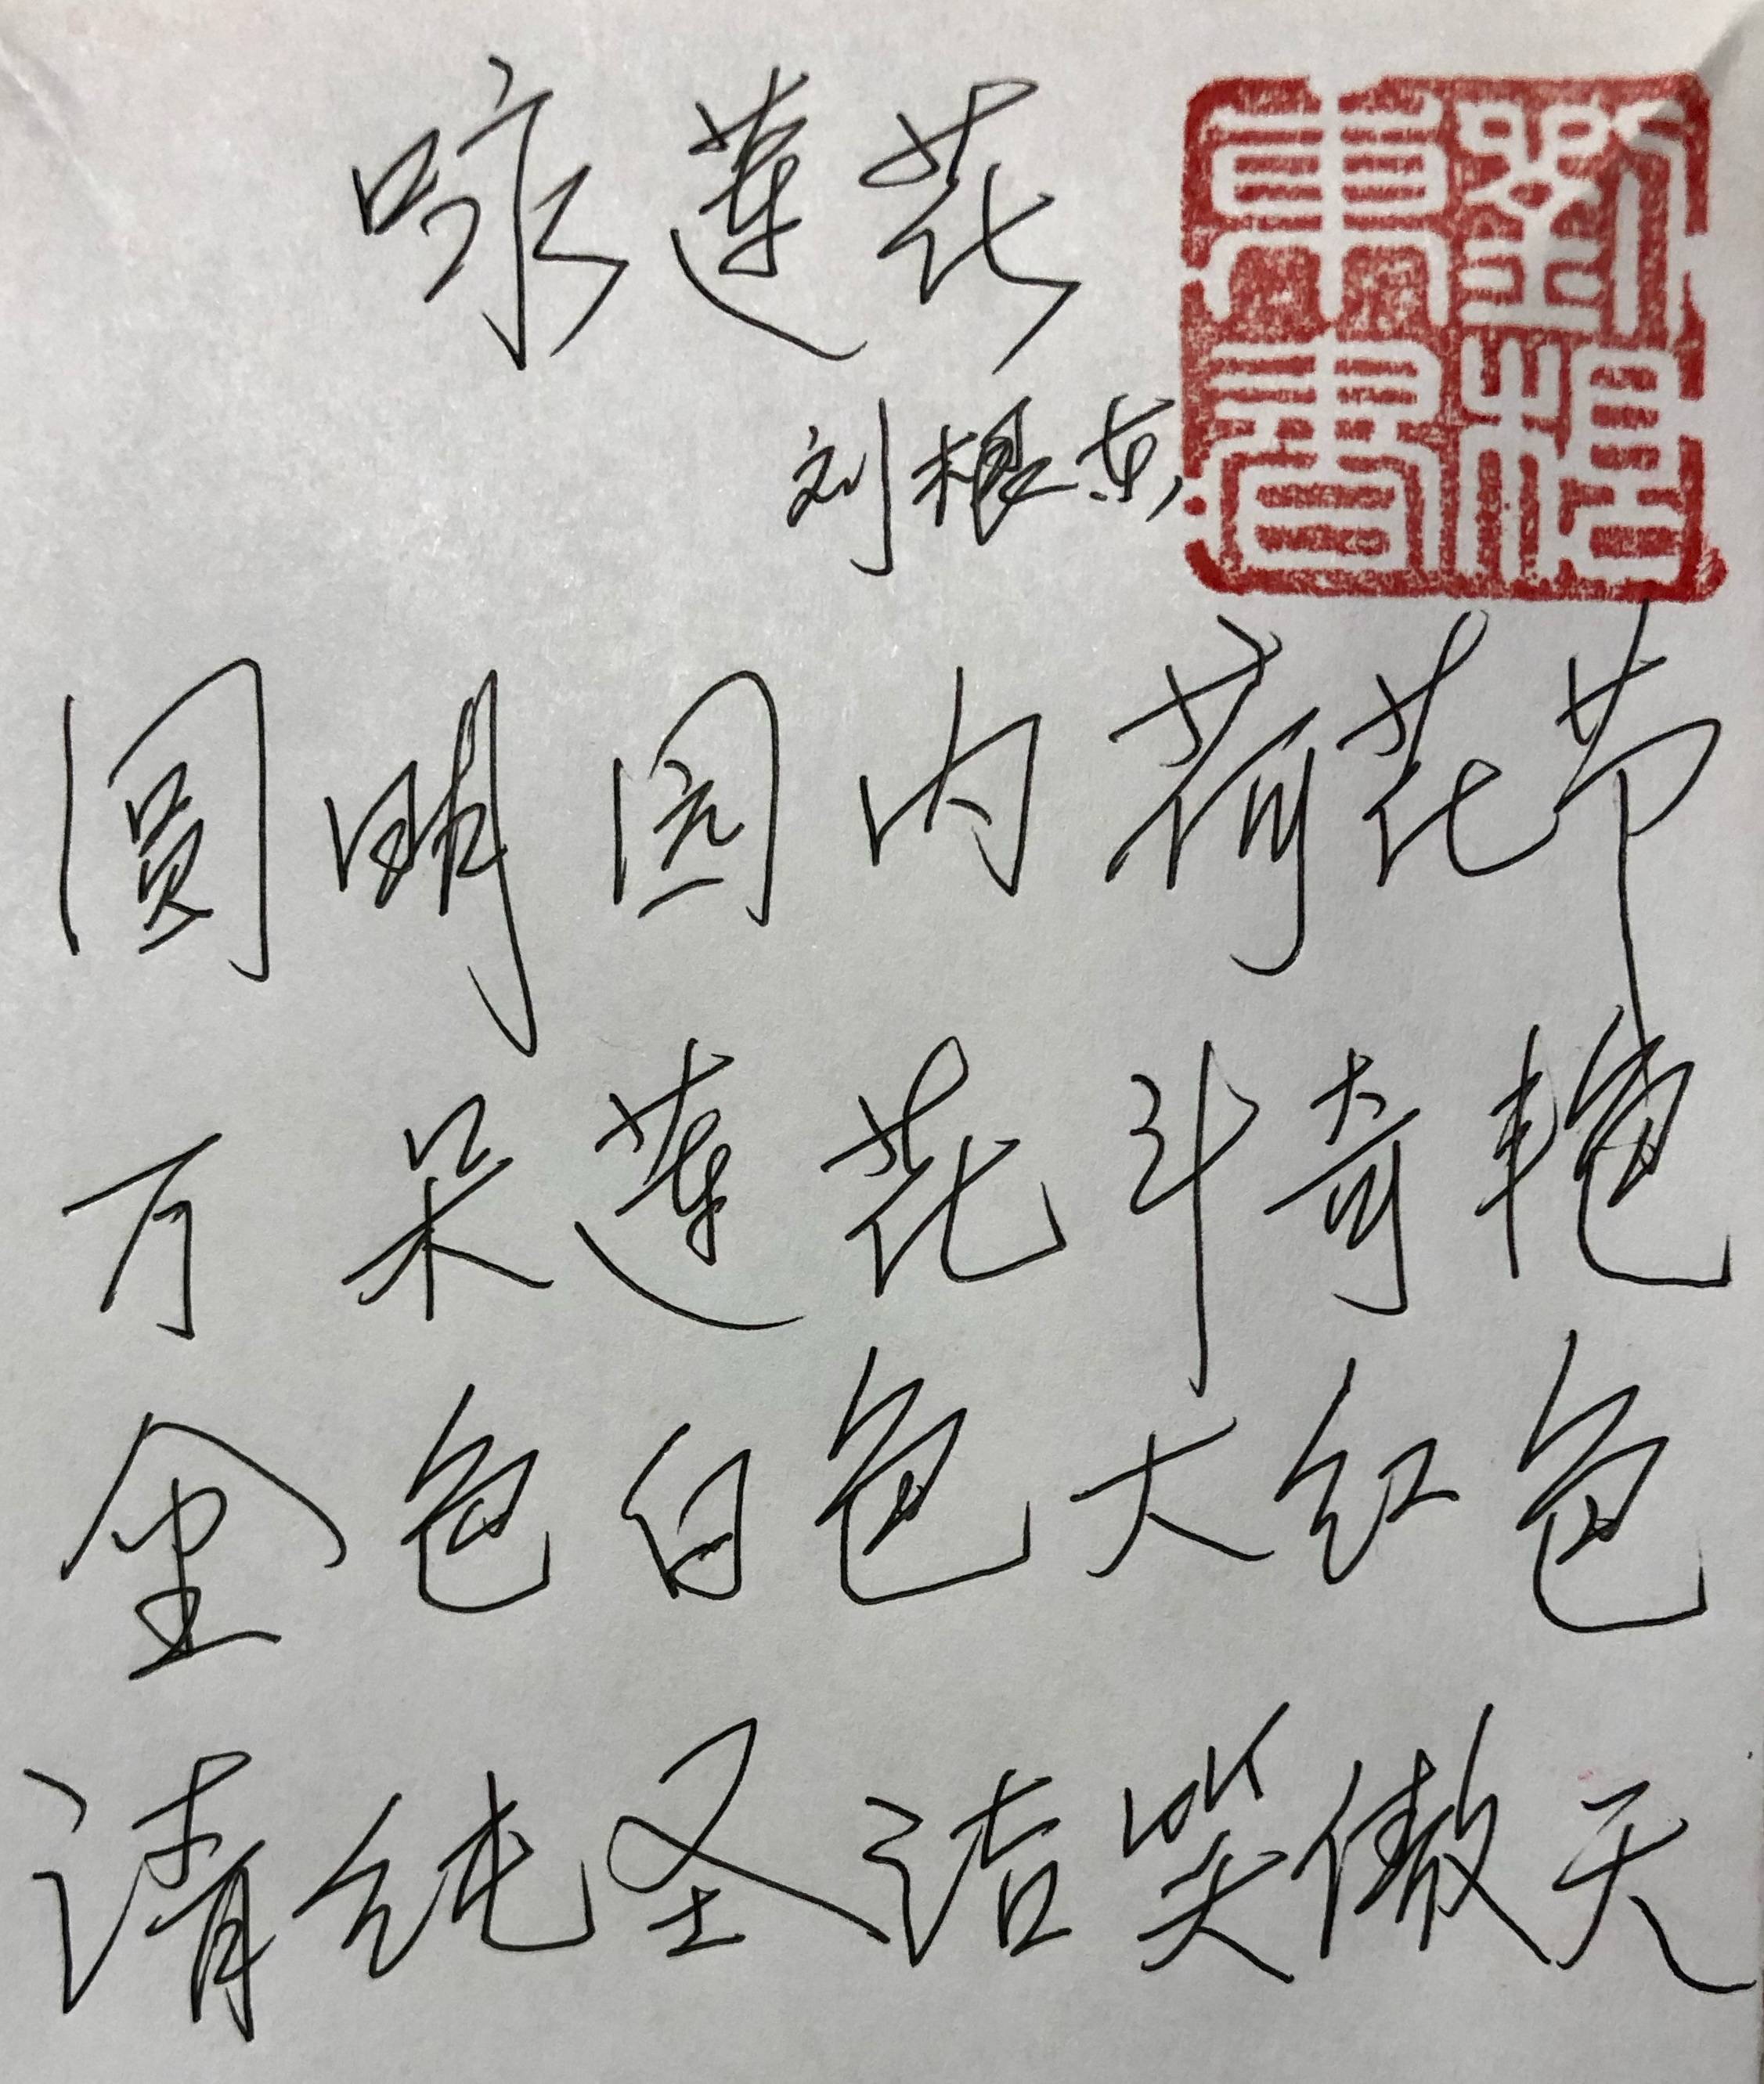 咏莲花
刘根东
劉根東書
圆明园内荷花节
万朵莲花斗奇艳
金色白色大红色
清纯圣洁笑傲天